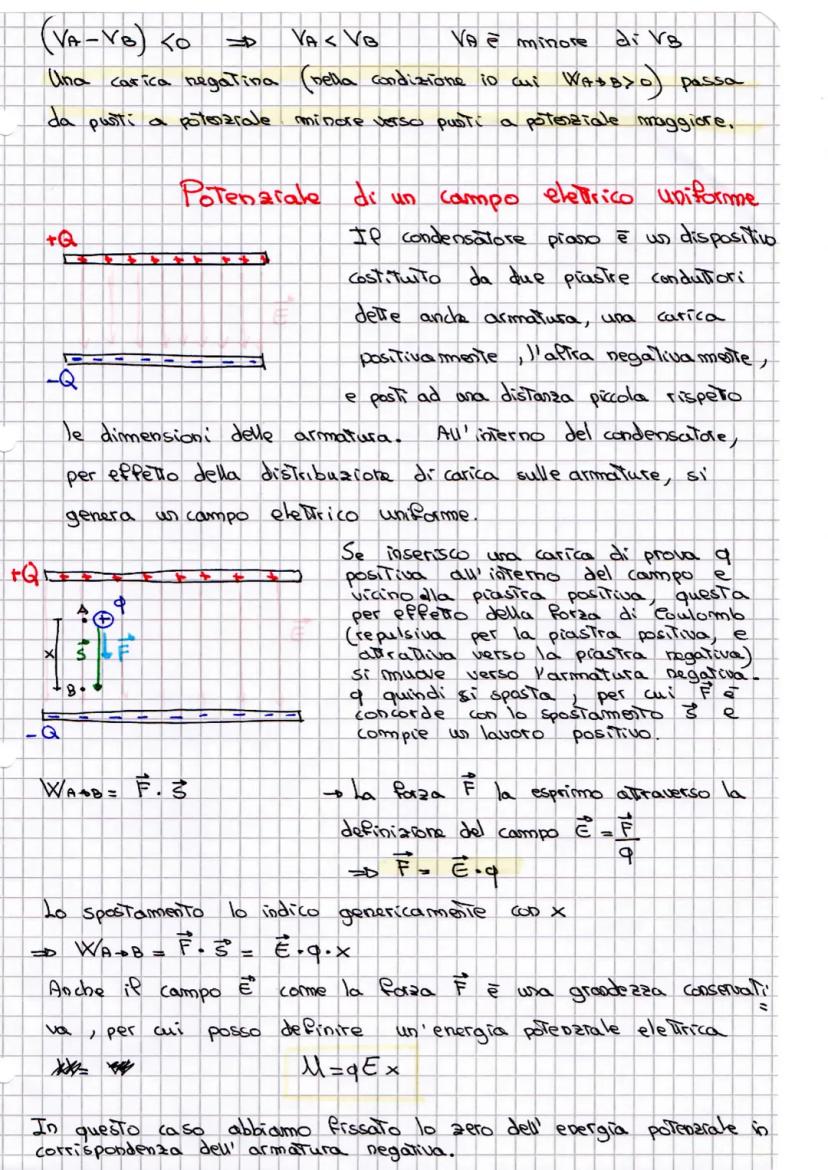 (VA-VB) <0 ⇒ VA < VB VA è minore di VB
Una carica negativa (nella condizione in cui WA→B>0) passa
da punti a potenziale minore verso punti a potenziale maggiore.
Potenziale di un campo elettrico uniforme
+Q
+ + + + + + + +
E
- - - - - - - -
-Q
Il condensatore piano è un dispositivo
costituito da due piastre conduttori
dette anche armatura, una carica
positivamente, l'altra negativamente,
e posti ad una distanza piccola rispetto
le dimensioni delle armatura. All'interno del condensatore,
per effetto della distribuzione di carica sulle armature, si
genera un campo elettrico uniforme.
+Q
+ + + + + + +
A + q
x S F
E
B
- - - - - - - -
-Q
Se inserisco una carica di prova q
positiva all'interno del campo e
vicino alla piastra positiva, questa
per effetto della forza di Coulomb
(repulsiva per la piastra positiva, e
attrattiva verso la piastra negativa)
si muove verso l'armatura negativa.
q quindi si sposta, per cui F⃗ è
concorde con lo spostamento s⃗ e
compie un lavoro positivo.
WA→B = F⃗ · s⃗ → La forza F⃗ la esprimo attraverso la
definizione del campo E⃗ = F⃗/q
⇒ F⃗ = E⃗ · q
Lo spostamento lo indico genericamente con x
⇒ WA→B = F⃗ · s⃗ = E⃗ · q · x
Anche il campo E⃗ come la forza F⃗ è una grandezza conservati=
va, per cui posso definire un'energia potenziale elettrica
U=qEx
In questo caso abbiamo fissato lo zero dell'energia potenziale in
corrispondenza dell'armatura negativa.